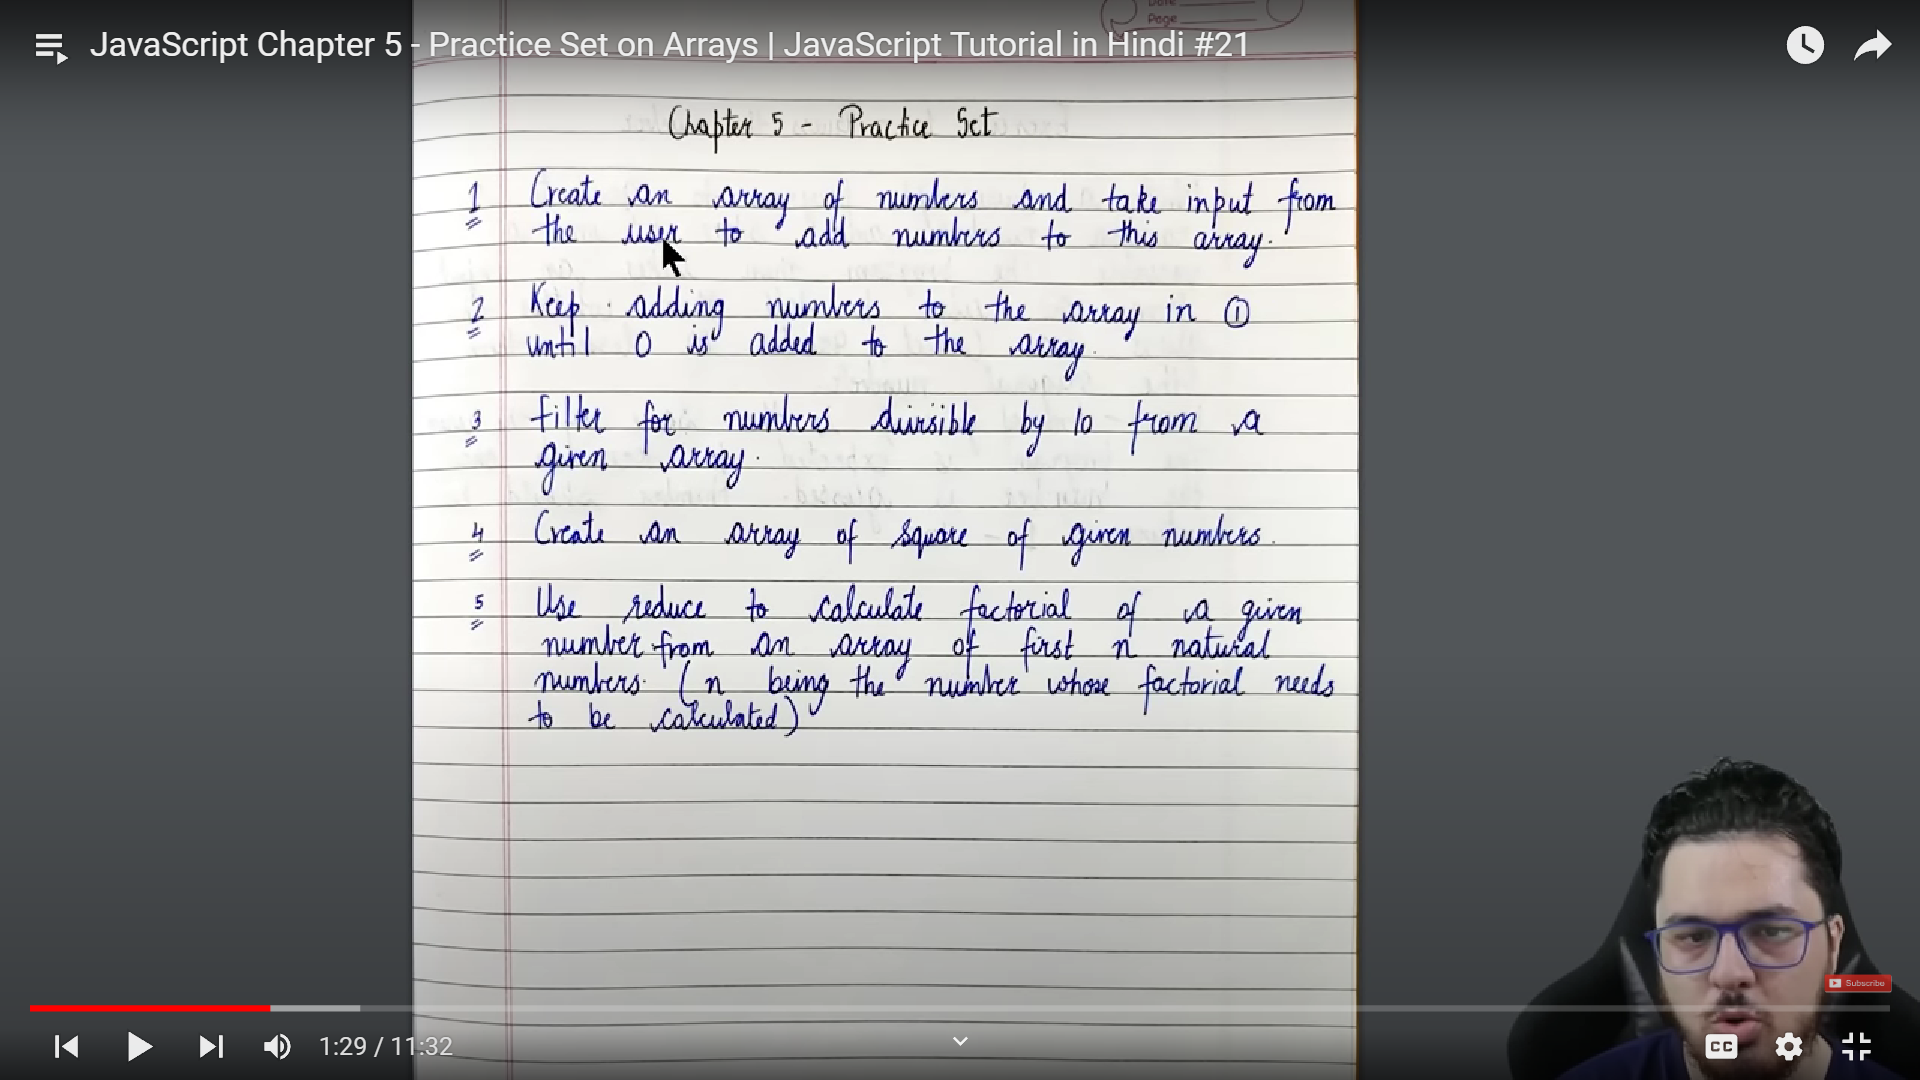 Date
Page
JavaScript Chapter 5 - Practice Set on Arrays | JavaScript Tutorial in Hindi #21
Chapter 5 - Practice Set
1 Create an array of numbers and take input from
the user to add numbers to this array.
2 Keep adding numbers to the array in ①
until 0 is added to the array.
3 Filter for numbers divisible by 10 from a
given array.
4 Create an array of square of given numbers.
5 Use reduce to calculate factorial of a given
number from an array of first n natural
numbers. (n being the number whose factorial needs
to be calculated)
Subscribe
1:29 / 11:32
CC